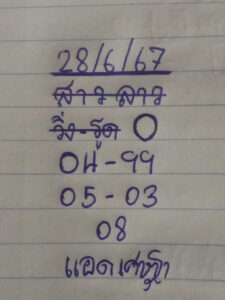 28/6/67
สาวลาว
วิ่ง-รูด O
04-99
05-03
08
แอดเศรษฐา